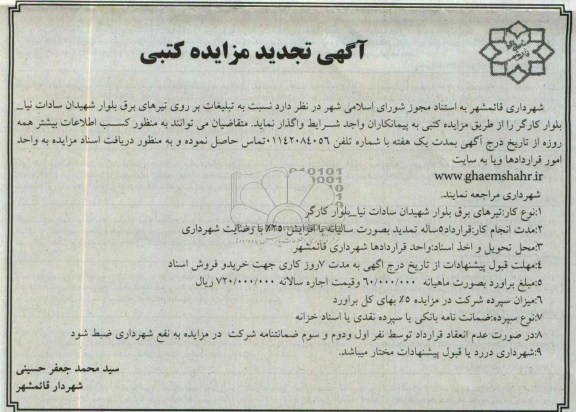 آگهی تجدید مزایده کتبی
شهرداری قائمشهر به استناد مجوز شورای اسلامی شهر در نظر دارد نسبت به تبلیغات بر روی تیرهای برق بلوار شهیدان سادات نیا_
بلوار کارگر را از طریق مزایده کتبی به پیمانکاران واجد شرایط واگذار نماید. متقاضیان می توانند به منظور کسب اطلاعات بیشتر همه
روزه از تاریخ درج آگهی بمدت یک هفته با شماره تلفن ۰۱۱۴۲۰۸۴۰۵۶تماس حاصل نموده و به منظور دریافت اسناد مزایده به واحد
امور قراردادها ویا به سایت
www.ghaemshahr.ir
شهرداری مراجعه نمایند.
۱:نوع کار:تیرهای برق بلوار شهیدان سادات نیا_بلوار کارگر
۲:مدت انجام کار:قرارداد۵ساله تمدید بصورت سالیانه با افزایش ۲۵٪ با رضایت شهرداری
۳:محل تحویل و اخذ اسناد:واحد قراردادها شهرداری قائمشهر
۴:مهلت قبول پیشنهادات از تاریخ درج اگهی به مدت ۷روز کاری جهت خریدو فروش اسناد
۵:مبلغ براورد بصورت ماهیانه ۶۰/۰۰۰/۰۰۰ وقیمت اجاره سالانه ۷۲۰/۰۰۰/۰۰۰ ریال
۶:میزان سپرده شرکت در مزایده ۵٪ بهای کل براورد
۷:نوع سپرده:ضمانت نامه بانکی یا سپرده نقدی یا اسناد خزانه
۸:در صورت عدم انعقاد قرارداد توسط نفر اول ودوم و سوم ضمانتنامه شرکت در مزایده به نفع شهرداری ضبط شود
۹:شهرداری دررد یا قبول پیشنهادات مختار میباشد.
سید محمد جعفر حسینی
شهردار قائمشهر